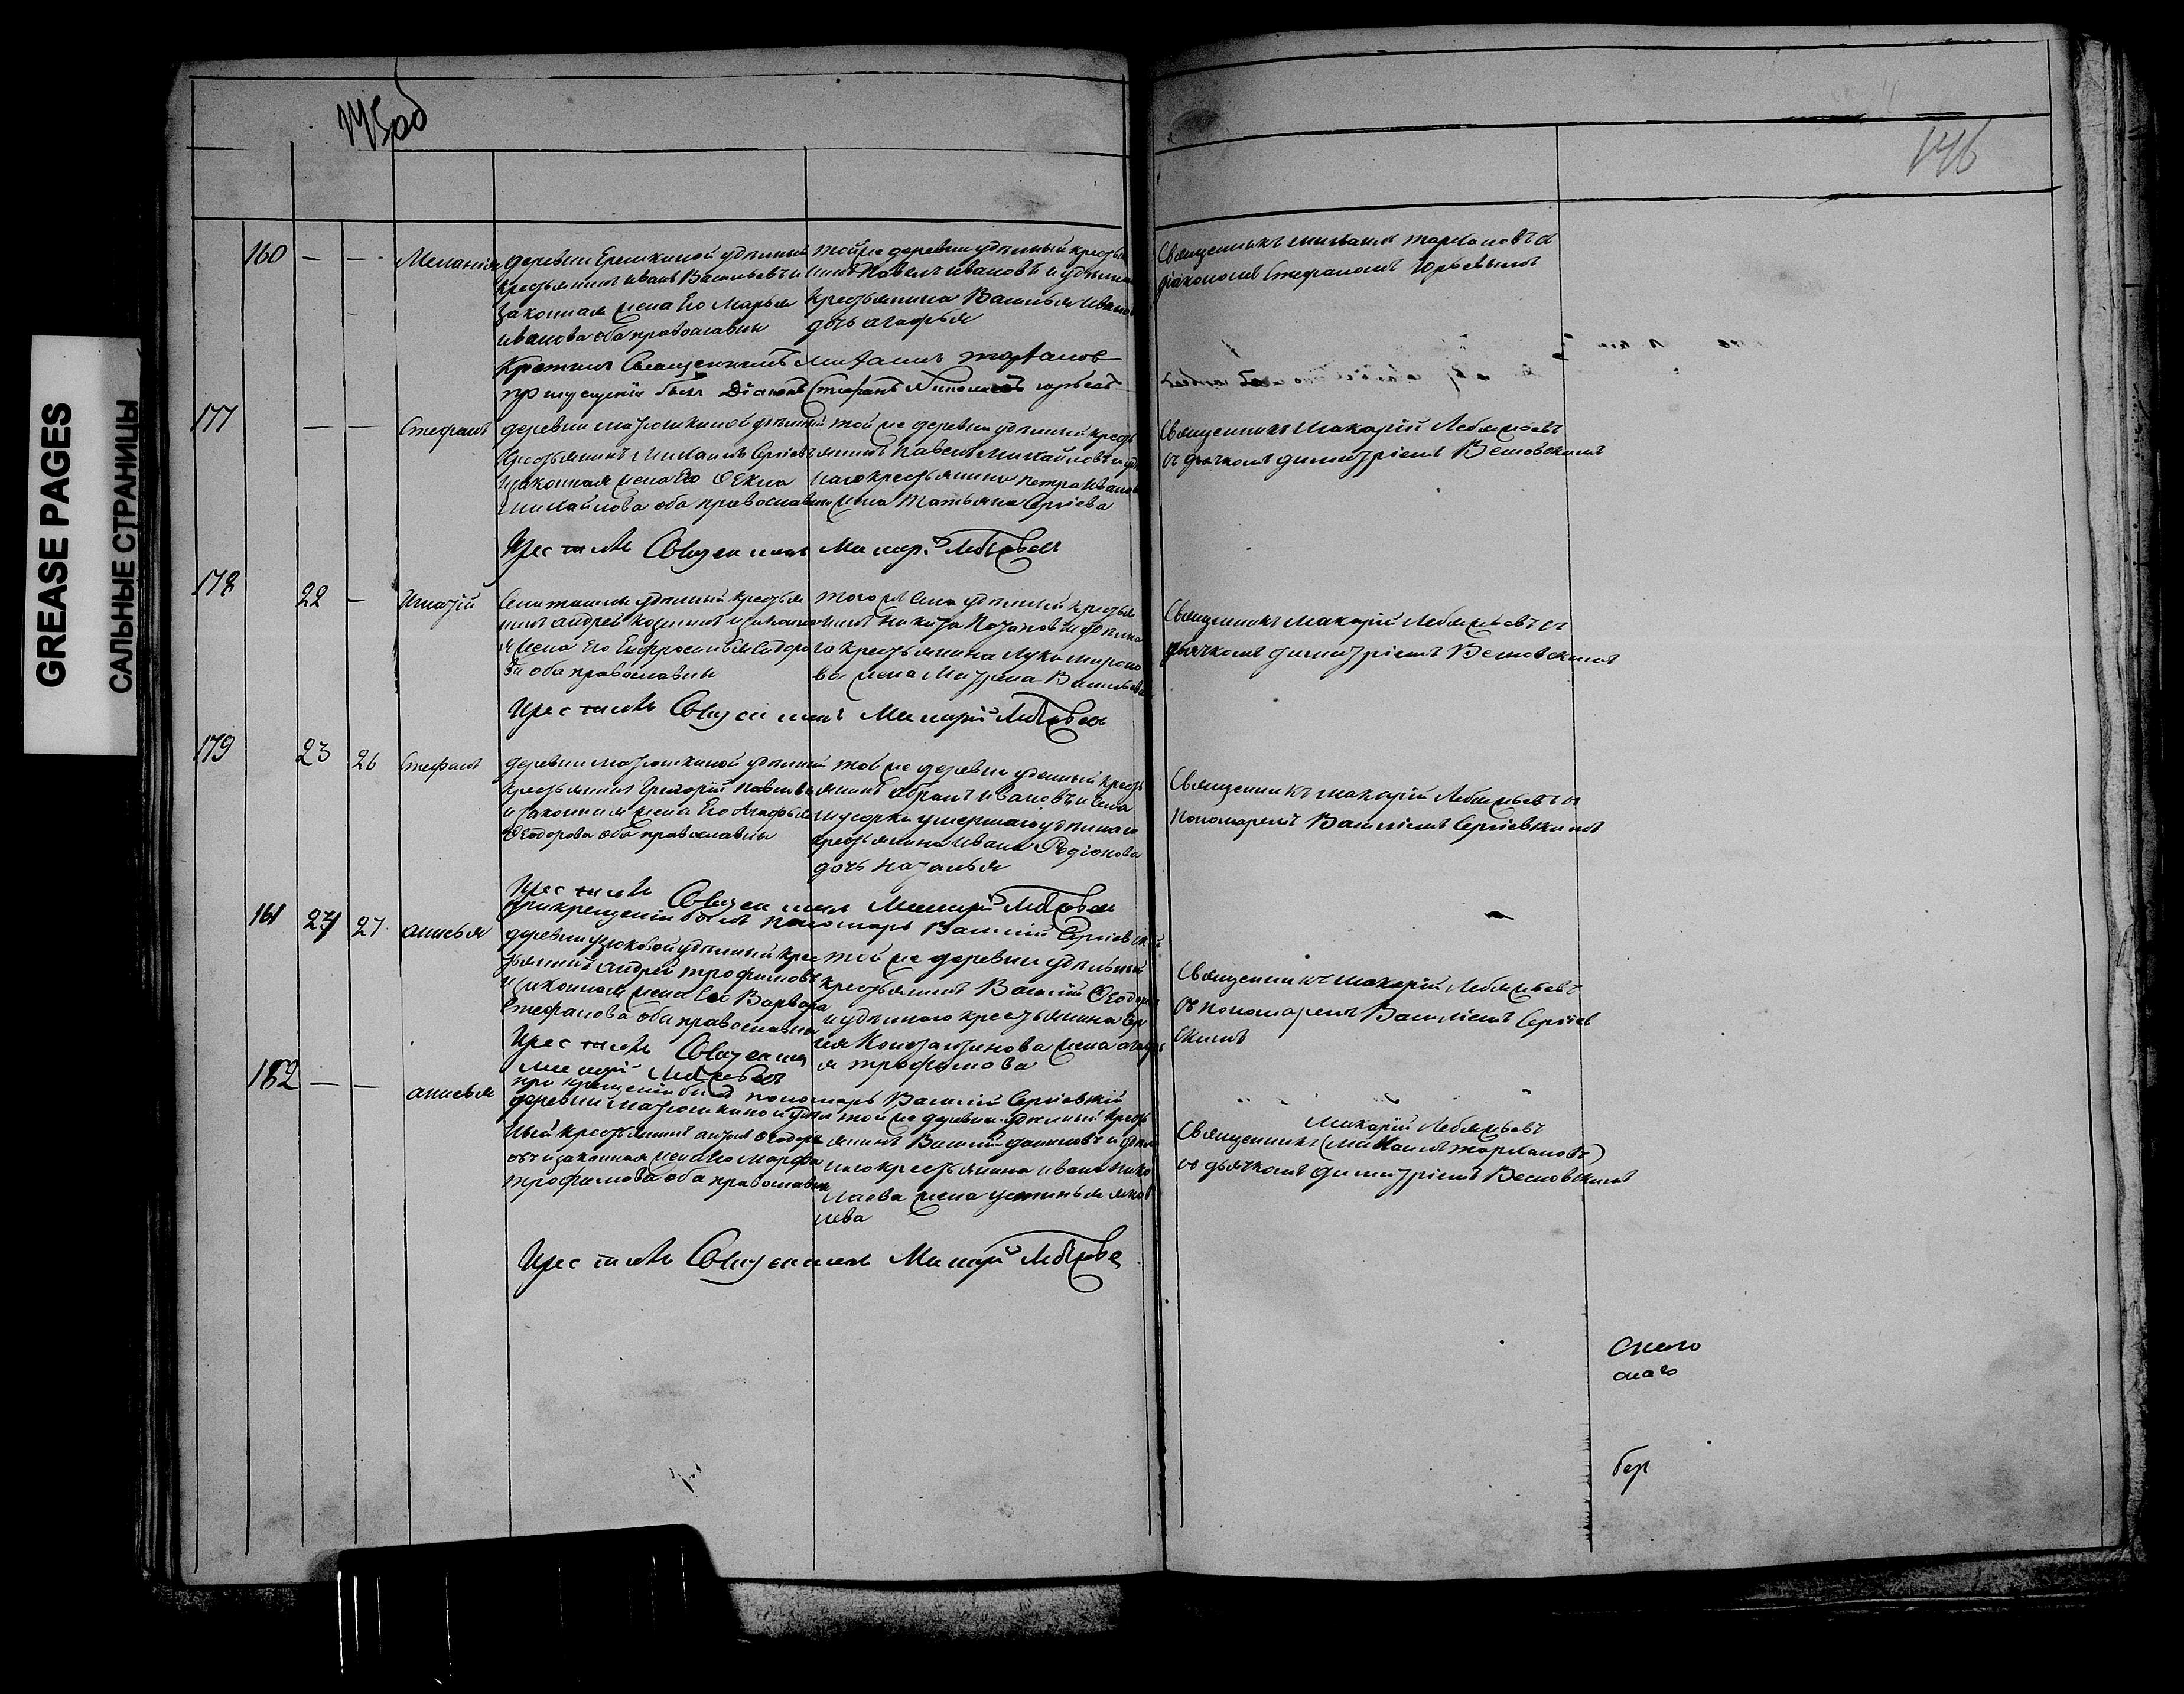 GREASE PAGES
САЛЬНЫЕ СТРАНИЦЫ
145об
146
160 — — Меланія
деревни Ерешкиной удѣльный
крестьянинъ иванъ Васильевъ и
законная жена Его Марья
иванова оба православны
тойже деревни удѣльный крестья
нинъ Павелъ ивановъ и удѣльна
крестьянина Василья иванов
дочь агафья
Священникъ михаилъ тарханов съ
діакономъ Стефаномъ Юрьевымъ
Крестилъ Священникъ михаилъ тарханов
при крещеніи былъ Діаконъ Стефанъ юрьевъ
177 — — Стефанъ
деревни матюшкиной удѣльный
Крестьянинъ михаилъ Сергіевъ
и законная жена Его Ѳекла
михайлова оба православны
той же деревни удѣльный кресть
янинъ павелъ михайловъ и удѣ
наго крестьянина петра иванов
жена Татьяна Сергіева
Священникъ макарій Лебяжьевъ
съ дьячкомъ димитріемъ Весновскимъ
Крестилъ Священникъ Макарій Лебяжьевъ
178 22 — игнатій
Села удѣльный крестья
нинъ андрей козминъ и законна
я жена Его Ефросинья Сидоро
ва оба православны
того же Села удѣльный крестья
нинъ никита Потаповъ и удѣльна
го крестьянина Луки мироно
ва жена матрена Васильева
Священникъ макарій Лебяжьевъ съ
дьячкомъ димитріемъ Весновскимъ
Крестилъ Священникъ Макарій Лебяжьевъ
179 23 26 Стефанъ
деревни матюшкиной удѣльный
крестьянинъ Григорій павловъ
и законная жена Его Агафья
Ѳеодорова оба православны
той же деревни удѣльный кресть
янинъ абрамъ ивановъ и села
умершаго удѣльнаго
крестьянина ивана Родіонова
дочь наталья
Священникъ макарій Лебяжьевъ съ
пономаремъ Василіемъ Сергіевскимъ
Крестилъ Священникъ Макарій Лебяжьевъ
при крещеніи былъ пономарь Василій Сергіевскій
161 24 27 анисья
деревни узюковой удѣльный крес
тьянинъ андрей трофимовъ
и законная жена Его Варвара
Стефанова оба православны
той же деревни удѣльный
крестьянинъ Василій Ѳеодоров
и удѣльнаго крестьянина Сер
гія Константинова жена агафь
я трофимова
Священникъ макарій Лебяжьевъ
съ пономаремъ Василіемъ Сергіев
скимъ
Крестилъ Священник
макарій Лебяжьевъ
при крещеніи былъ пономарь Василій Сергіевскій
182 — — анисья
деревни матюшкиной удѣль
ный крестьянинъ антонъ Ѳеодоро
въ и законная жена Его марфа
трофимова оба православны
той же деревни удѣльный кресть
янинъ Василій даниловъ и удѣль
наго крестьянина ивана нико
лаева жена устинья яков
лева
Макарій Лебяжьевъ
Священникъ (михаилъ тархановъ)
съ дьячкомъ димитріемъ Весновскимъ
Крестилъ Священникъ Макарій Лебяжьев